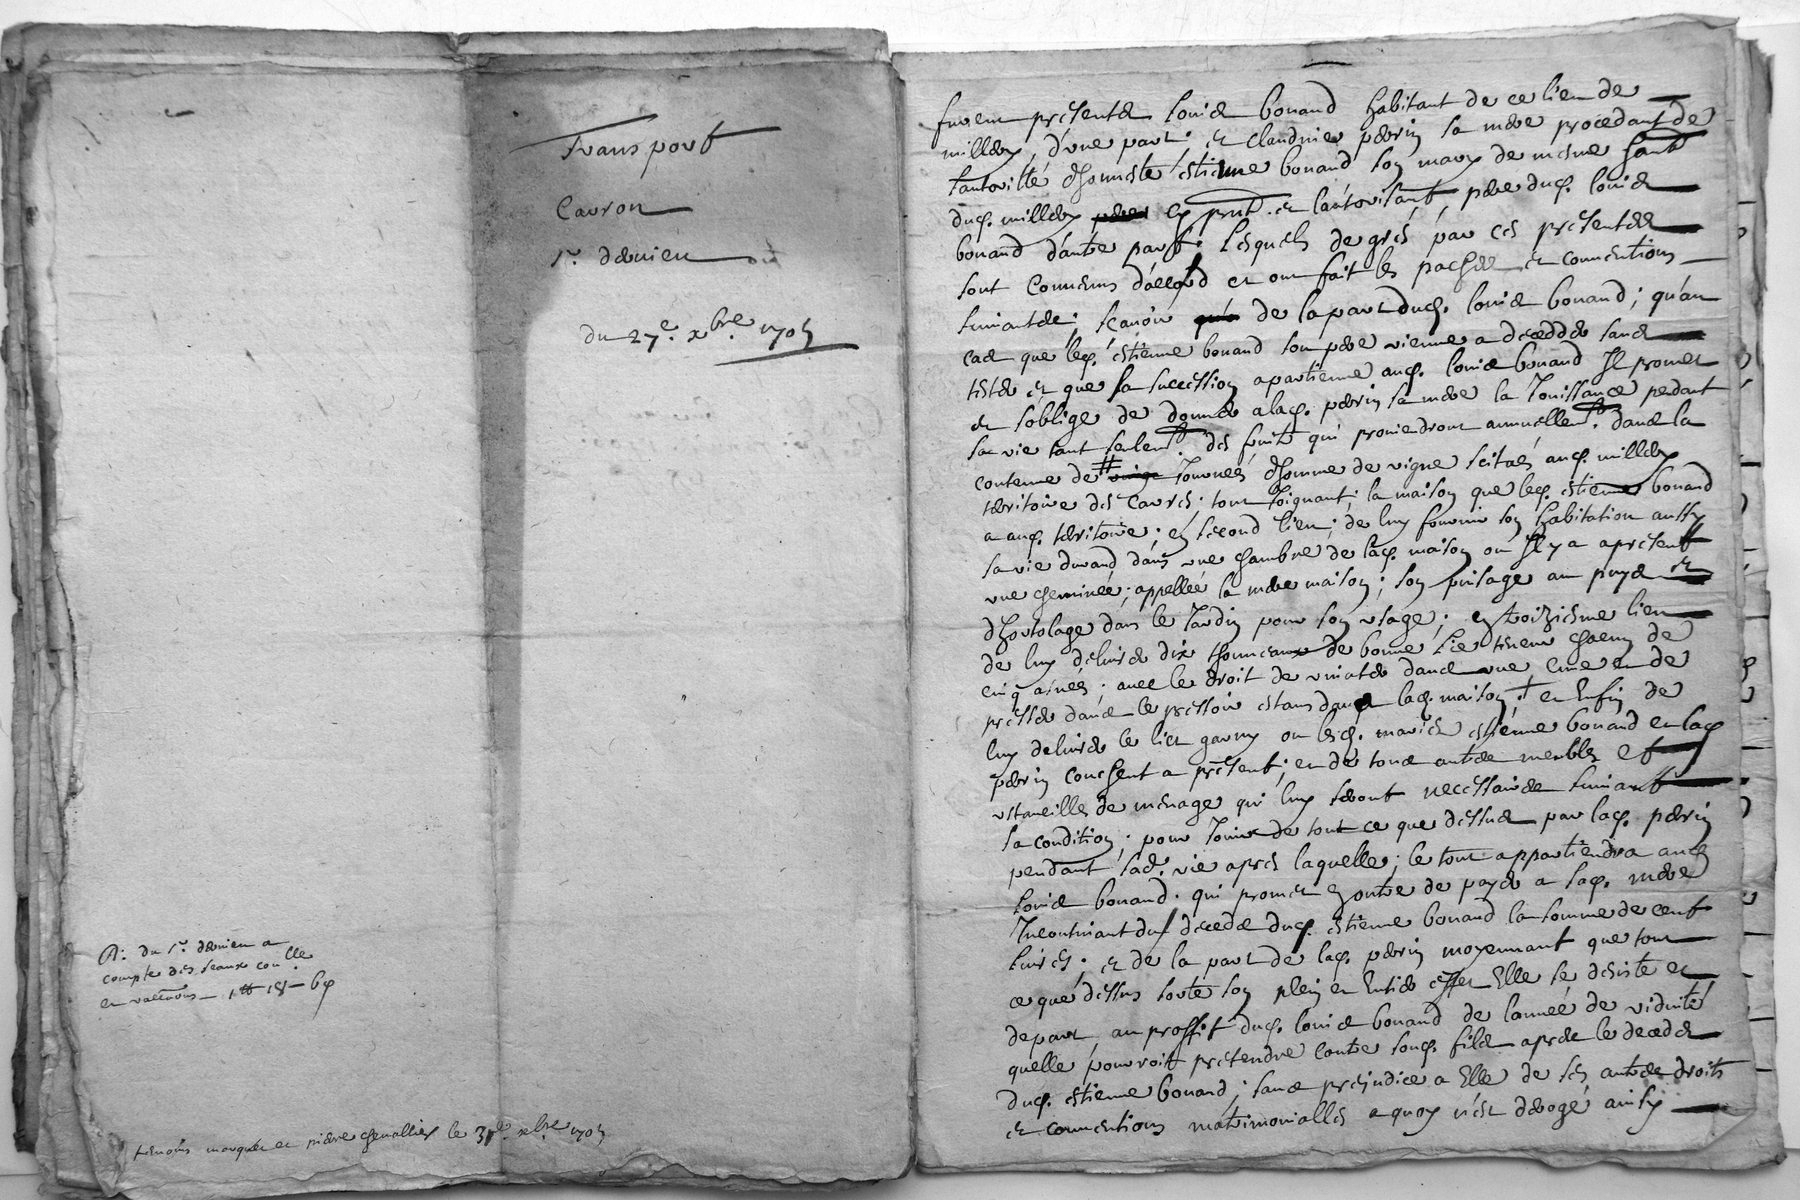 Transport
Carron
Sr. dernier
du 27e. xbre 1705
R: du Sr. dernier a
compte des seaux
tenoins marquer et pierre chevallier le 31e. xbre 1705
furent presents Louis bonand habitant de ce lieu de
millery d'une part; et claudine perrin sa mere procedant de
l'autorité d'honneste estienne bonand son mary de mesme habt
dud. millery en pnt. et l'autorisant, pere dud. Louis
bonand d'autre part; Lesquels de grés par ces presentes
sont convenus d'accord et ont fait les paches et conventions
suivantes; sçavoir de la part dud. Louis bonand; qu'au
cas que led. estienne bonand son pere vienne a deceder sans
tester et que sa succession apartienne aud. Louis bonand Il promet
et s'oblige de donner a lad. perrin sa mere la Jouissance pendant
sa vie tant seulemt. des fruits qui proviendront annuellemt. dans la
contenue de # Journeés d'homme de vigne scitués aud. millery
territoire des Carres; tout Joignant; la maison que led. estienne bonand
a aud. territoire; en second lieu; de luy fournir son habitation aussy
sa vie durand dans une chambre de lad. maison ou Il y a apresent
une cheminée; appelleé la mere maison; son puisage au puys et
d'hortolage dans le Jardin pour son usage; en troiziesme lieu
de luy delivrer dix thonneaux de bonne Lie tenant chacun de
cinq asneés; avec le droit de dans une cuve et de
presser dans le pressoir estans dans lad. maison; et Enfin de
luy delivrer le lict garny ou lesd. mariés estienne bonand et lad.
perrin couchent a present; et de tous autres meubles et
ustancilles de menage qui luy seront necessaires suivant
sa condition; pour Jouir de tout ce que dessus par lad. perrin
pendant sad. vie apres laquelle; le tout appartiendra aud.
Louis bonand; qui promet en outre de payer a lad. mere
Incontinant du decedz dud. estienne bonand la somme de cent
livres; et de la part de lad. perrin moyennant que tout
ce que dessus sorte son plein et Entier effet Elle se desiste et
depart au proffit dud. Louis bonand de l'anneé de viduité
quelle pourroit pretendre contre sond. fils apres le decedz
dud. estienne bonand; sans prejudice a Elle de ses autres droits
et conventions matrimonialles a quoy n'est derogé ainsy